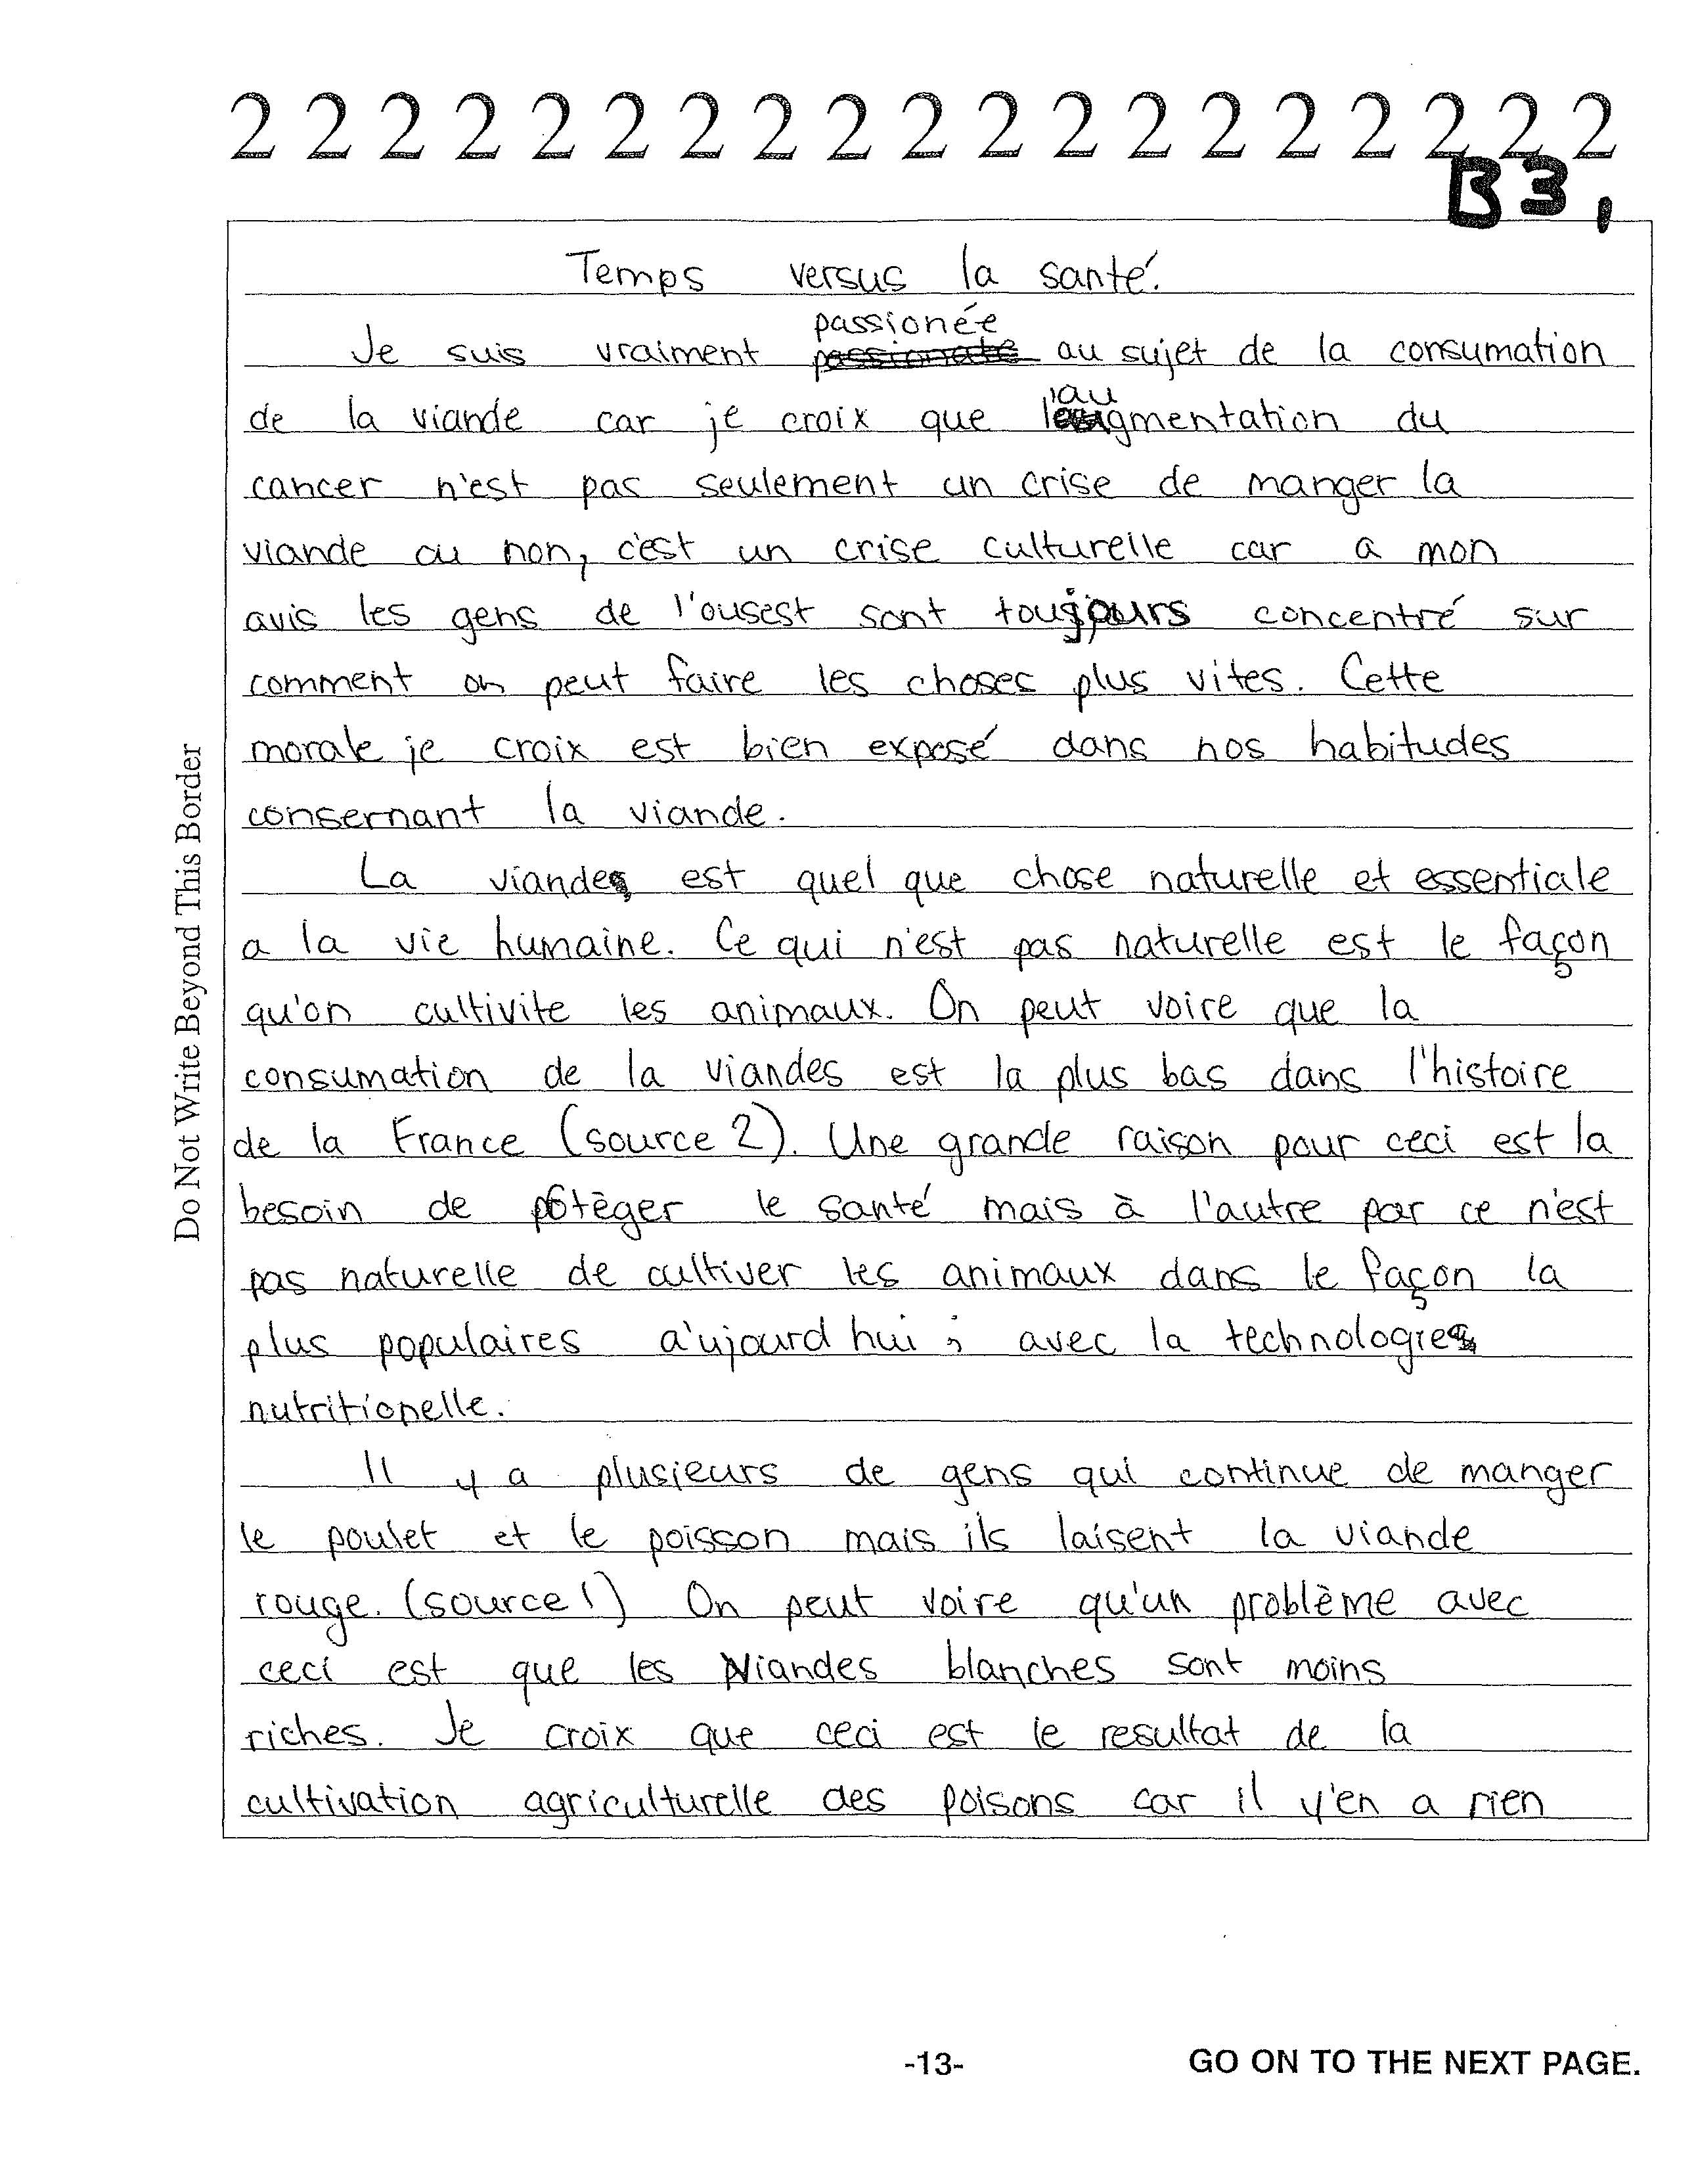 2 2 2 2 2 2 2 2 2 2 2 2 2 2 2 2 2 2 2
B3,
Temps versus la santé.
passionée
Je suis vraiment au sujet de la consumation
de la viande car je croix que l'augmentation du
cancer n'est pas seulement un crise de manger la
viande ou non, c'est un crise culturelle car a mon
avis les gens de l'ousest sont toujours concentré sur
comment on peut faire les choses plus vites. Cette
morale je croix est bien exposé dans nos habitudes
consernant la viande.
La viande est quel que chose naturelle et essentiale
a la vie humaine. Ce qui n'est pas naturelle est le façon
qu'on cultivite les animaux. On peut voire que la
consumation de la viandes est la plus bas dans l'histoire
de la France (source 2). Une grande raison pour ceci est la
besoin de le santé mais à l'autre par ce n'est
pas naturelle de cultiver les animaux dans le façon la
plus populaires a'ujourd hui ; avec la technologie
nutritionelle.
Il y a plusieurs de gens qui continue de manger
le poulet et le poisson mais ils laisent la viande
rouge. (source 1) On peut voire qu'un problème avec
ceci est que les viandes blanches sont moins
riches. Je croix que ceci est le resultat de la
cultivation agriculturelle des poisons car il y'en a rien
Do Not Write Beyond This Border
-13-
GO ON TO THE NEXT PAGE.